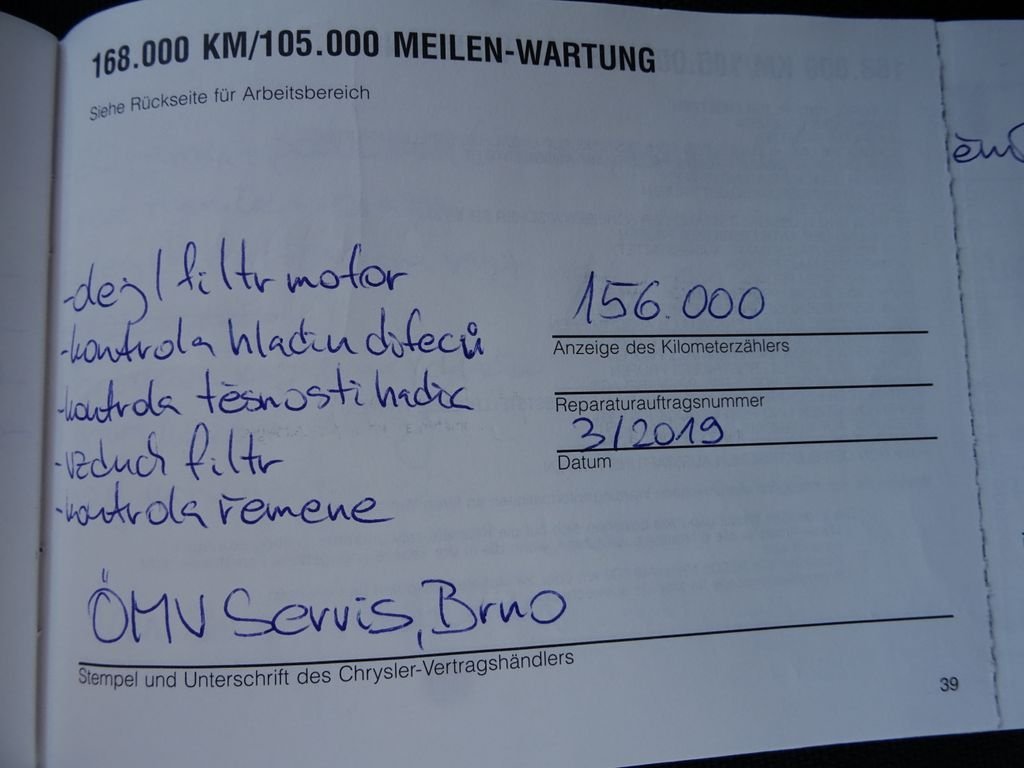 168.000 KM/105.000 MEILEN-WARTUNG
Siehe Rückseite für Arbeitsbereich
-olej/filtr motor
-kontrola hladin difeců
-kontrola těsnosti hadic
-vzduch filtr
-kontrola řemene
156.000
Anzeige des Kilometerzählers
Reparaturauftragsnummer
3/2019
Datum
ÖMV Servis, Brno
Stempel und Unterschrift des Chrysler-Vertragshändlers
39